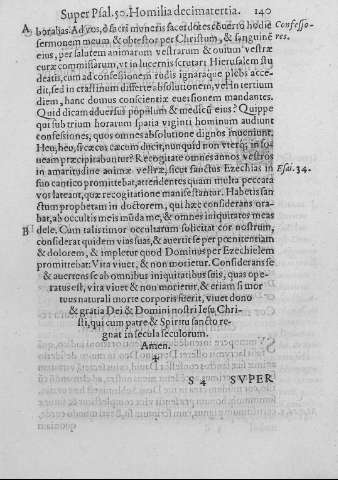 Super Psal. 50. Homilia decimatertia. 140
A borabas. Ad vos, ô sacri muneris sacerdotes cōuerto hodie Confesso-
sermonem meum & obtestor per Christum, & sanguinē res.
eius, per salutem animarum vestrarum & ouium vestræ
curæ commissarum, vt in lucernis scrutari Hierusalem stu
deatis, cum ad confessionem rudis ignaraque plebs accē-
dit, sed in crastinum differte absolutionem, vel in tertium
diem, hanc domus conscientiæ euersionem mandantes.
Quid dicam aduersus populum & medicū eius? Quippe
qui sub trium horarum spatia viginti hominum audiunt
confessiones, quos omnes absolutione dignos inueniunt.
Heu, heu, si cæcus cæcum ducit, nunquid non vterq; in fo-
ueam præcipitabuntur? Recogitate omnes annos vestros
in amaritudine animæ vestræ, sicut sanctus Ezechias in Esai. 34.
suo cantico promittebat, attendentes quam multa peccata
vos lateant, quæ recogitatione manifestantur. Habetis san
ctum prophetam in doctorem, qui hæc considerans ora-
bat, ab occultis meis mūda me, & omnes iniquitates meas
B dele. Cum talis timor occultarum solicitat cor nostrum,
considerat quidem vias suas, & auertit se per pœnitentiam
& dolorem, & impletur quod Dominus per Ezechielem
promittebat: Vita viuet, & non morietur. Considerans se
& auertens se ab omnibus iniquitatibus suis, quas ope-
ratus est, vita viuet & non morietur, & etiam si mor
tuus naturali morte corporis fuerit, viuet dono
& gratia Dei & Domini nostri Iesu Chri-
sti, qui cum patre & Spiritu sancto re-
gnat in secula seculorum.
Amen.
S 4 SVPER